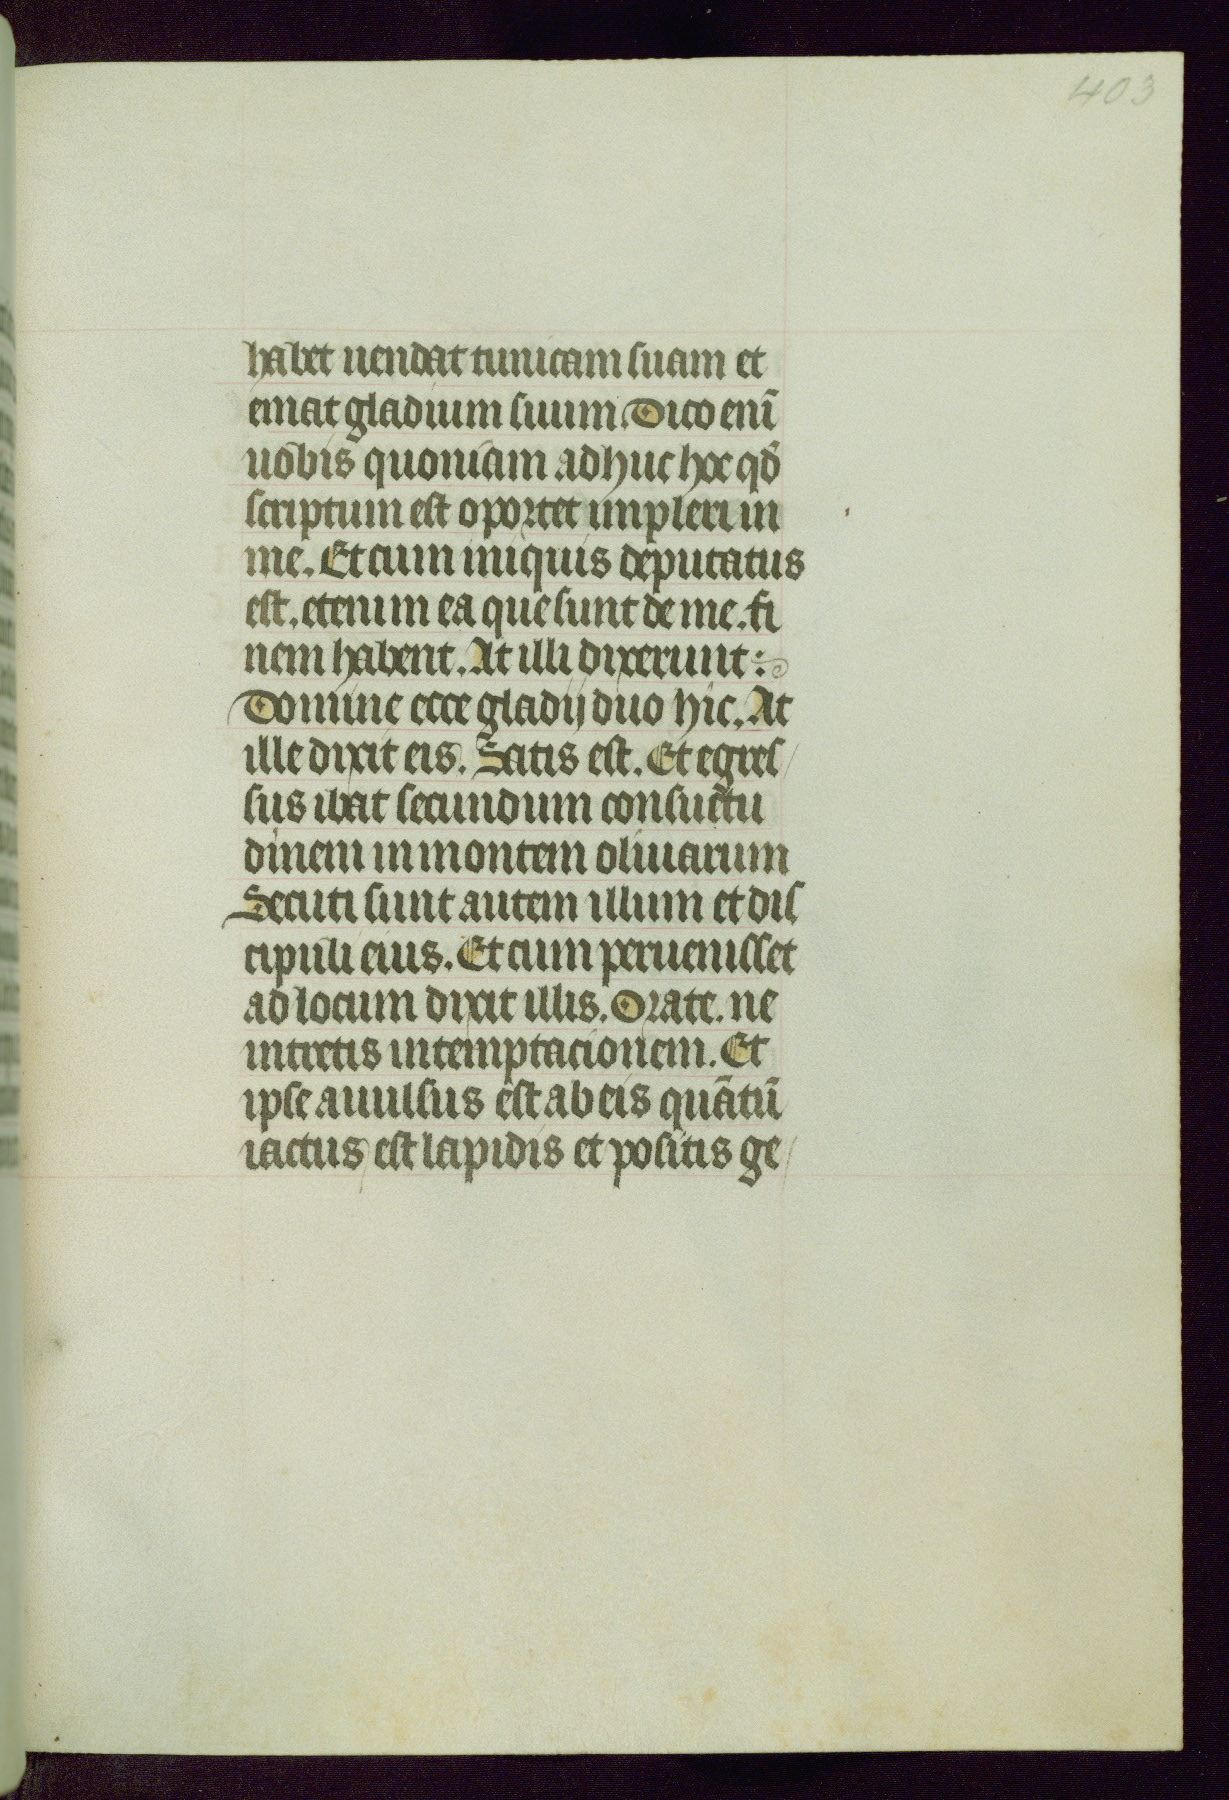 403
habet uendat tunicam suam et
emat gladium suum. Dico enī
uobis quoniam adhuc hoc qđ
scriptum est oportet impleri in
me. Et cum iniquis deputatus
est. etenim ea que sunt de me. fi
nem habent. At illi dixerunt:
Domine ecce gladij duo hic. At
ille dixit eis. Satis est. Et egres/
sus ibat secundum consuetu
dinem in montem oliuarum
Secuti sunt autem illum et dis
cipuli eius. Et cum peruenisset
ad locum dixit illis. Orate. ne
intretis in temptacionem. Et
ipse auulsus est ab eis quātū
iactus est lapidis et positis ge/